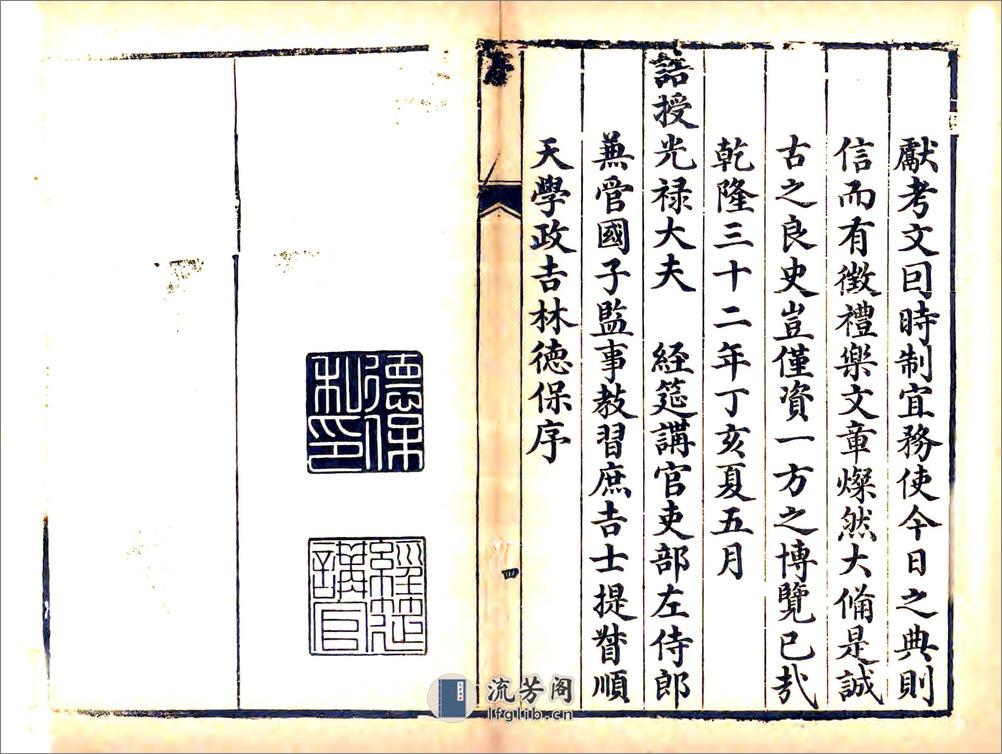 獻考文囙時制宜務使今日之典則
信而有徵禮樂文章燦然大備是誠
古之良史豈僅資一方之博覽已㢤
乾隆三十二年丁亥夏五月
誥授光祿大夫　經筵講官吏部左侍郎
兼管國子監事教習庶吉士提督順
天學政吉林德保序
四
德保
私印
經筵
講官
流芳阁
lfglib.cn